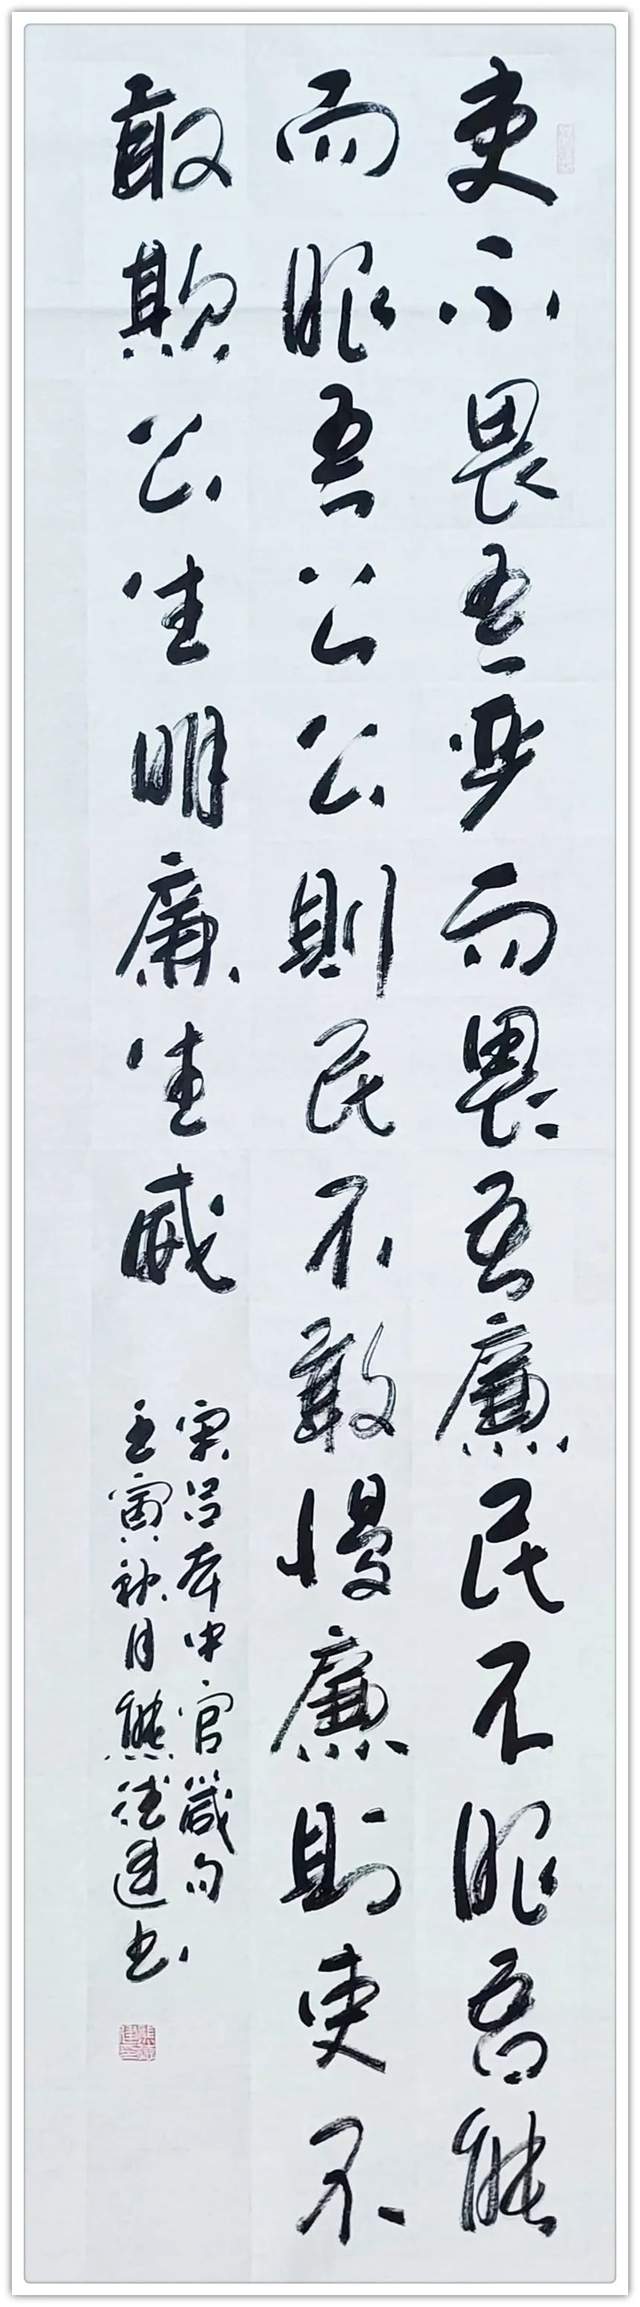 吏不畏吾严而畏吾廉民不服吾能
而服吾公公則民不敢慢廉則吏不
敢欺公生明廉生威
宋吕本中官箴句
壬寅秋月熊德建书